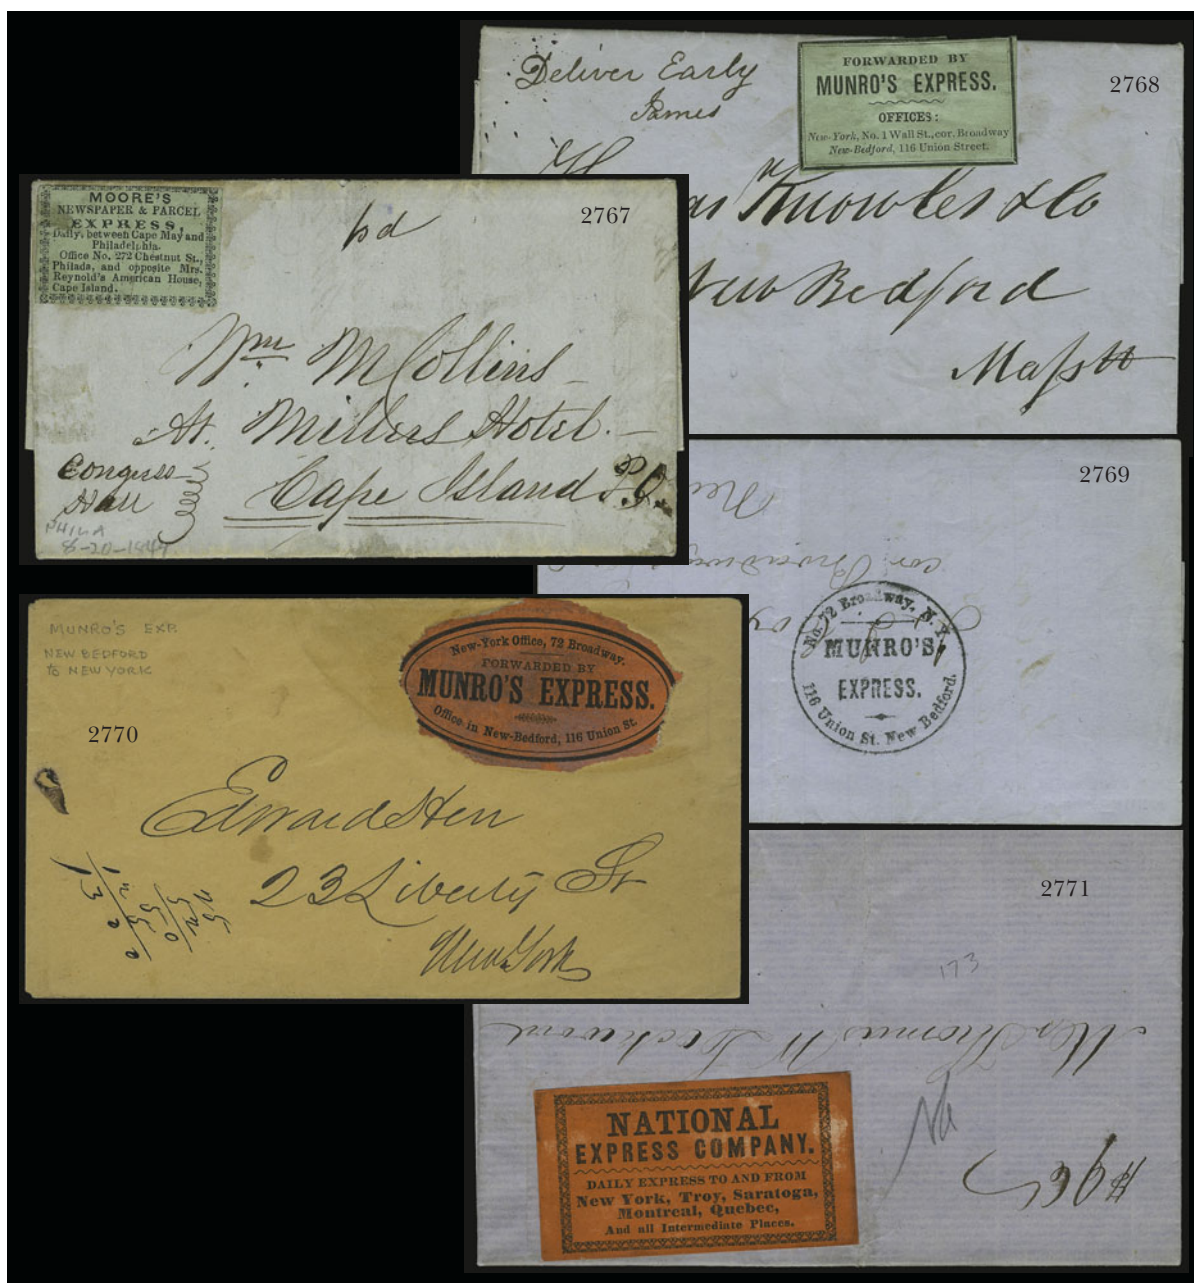 Deliver Early
James
FORWARDED BY
MUNRO'S EXPRESS.
OFFICES:
New-York, No. 1 Wall St., cor. Broadway
New-Bedford, 116 Union Street.
2768
Knowles & Co
New Bedford
Masstt
MOORE'S
NEWSPAPER & PARCEL
EXPRESS,
Daily, between Cape May and
Philadelphia.
Office No. 272 Chestnut St.,
Philada, and opposite Mrs.
Reynold's American House,
Cape Island.
pd
2767
Wm McCollins
At Millers Hotel.
Congress
Hall
Cape Island P.O.
PHILA
8-20-1847
2769
cor Broadway
No. 72 Broadway, N. Y.
MUNRO'S
EXPRESS.
116 Union St. New Bedford.
MUNRO'S EXP.
NEW BEDFORD
to NEW YORK
New-York Office, 72 Broadway.
FORWARDED BY
MUNRO'S EXPRESS.
Office in New-Bedford, 116 Union St.
2770
Edward
23 Liberty St
New York
2771
173
Mrs Thomas W Lockwood
NATIONAL
EXPRESS COMPANY.
DAILY EXPRESS TO AND FROM
New York, Troy, Saratoga,
Montreal, Quebec,
And all Intermediate Places.